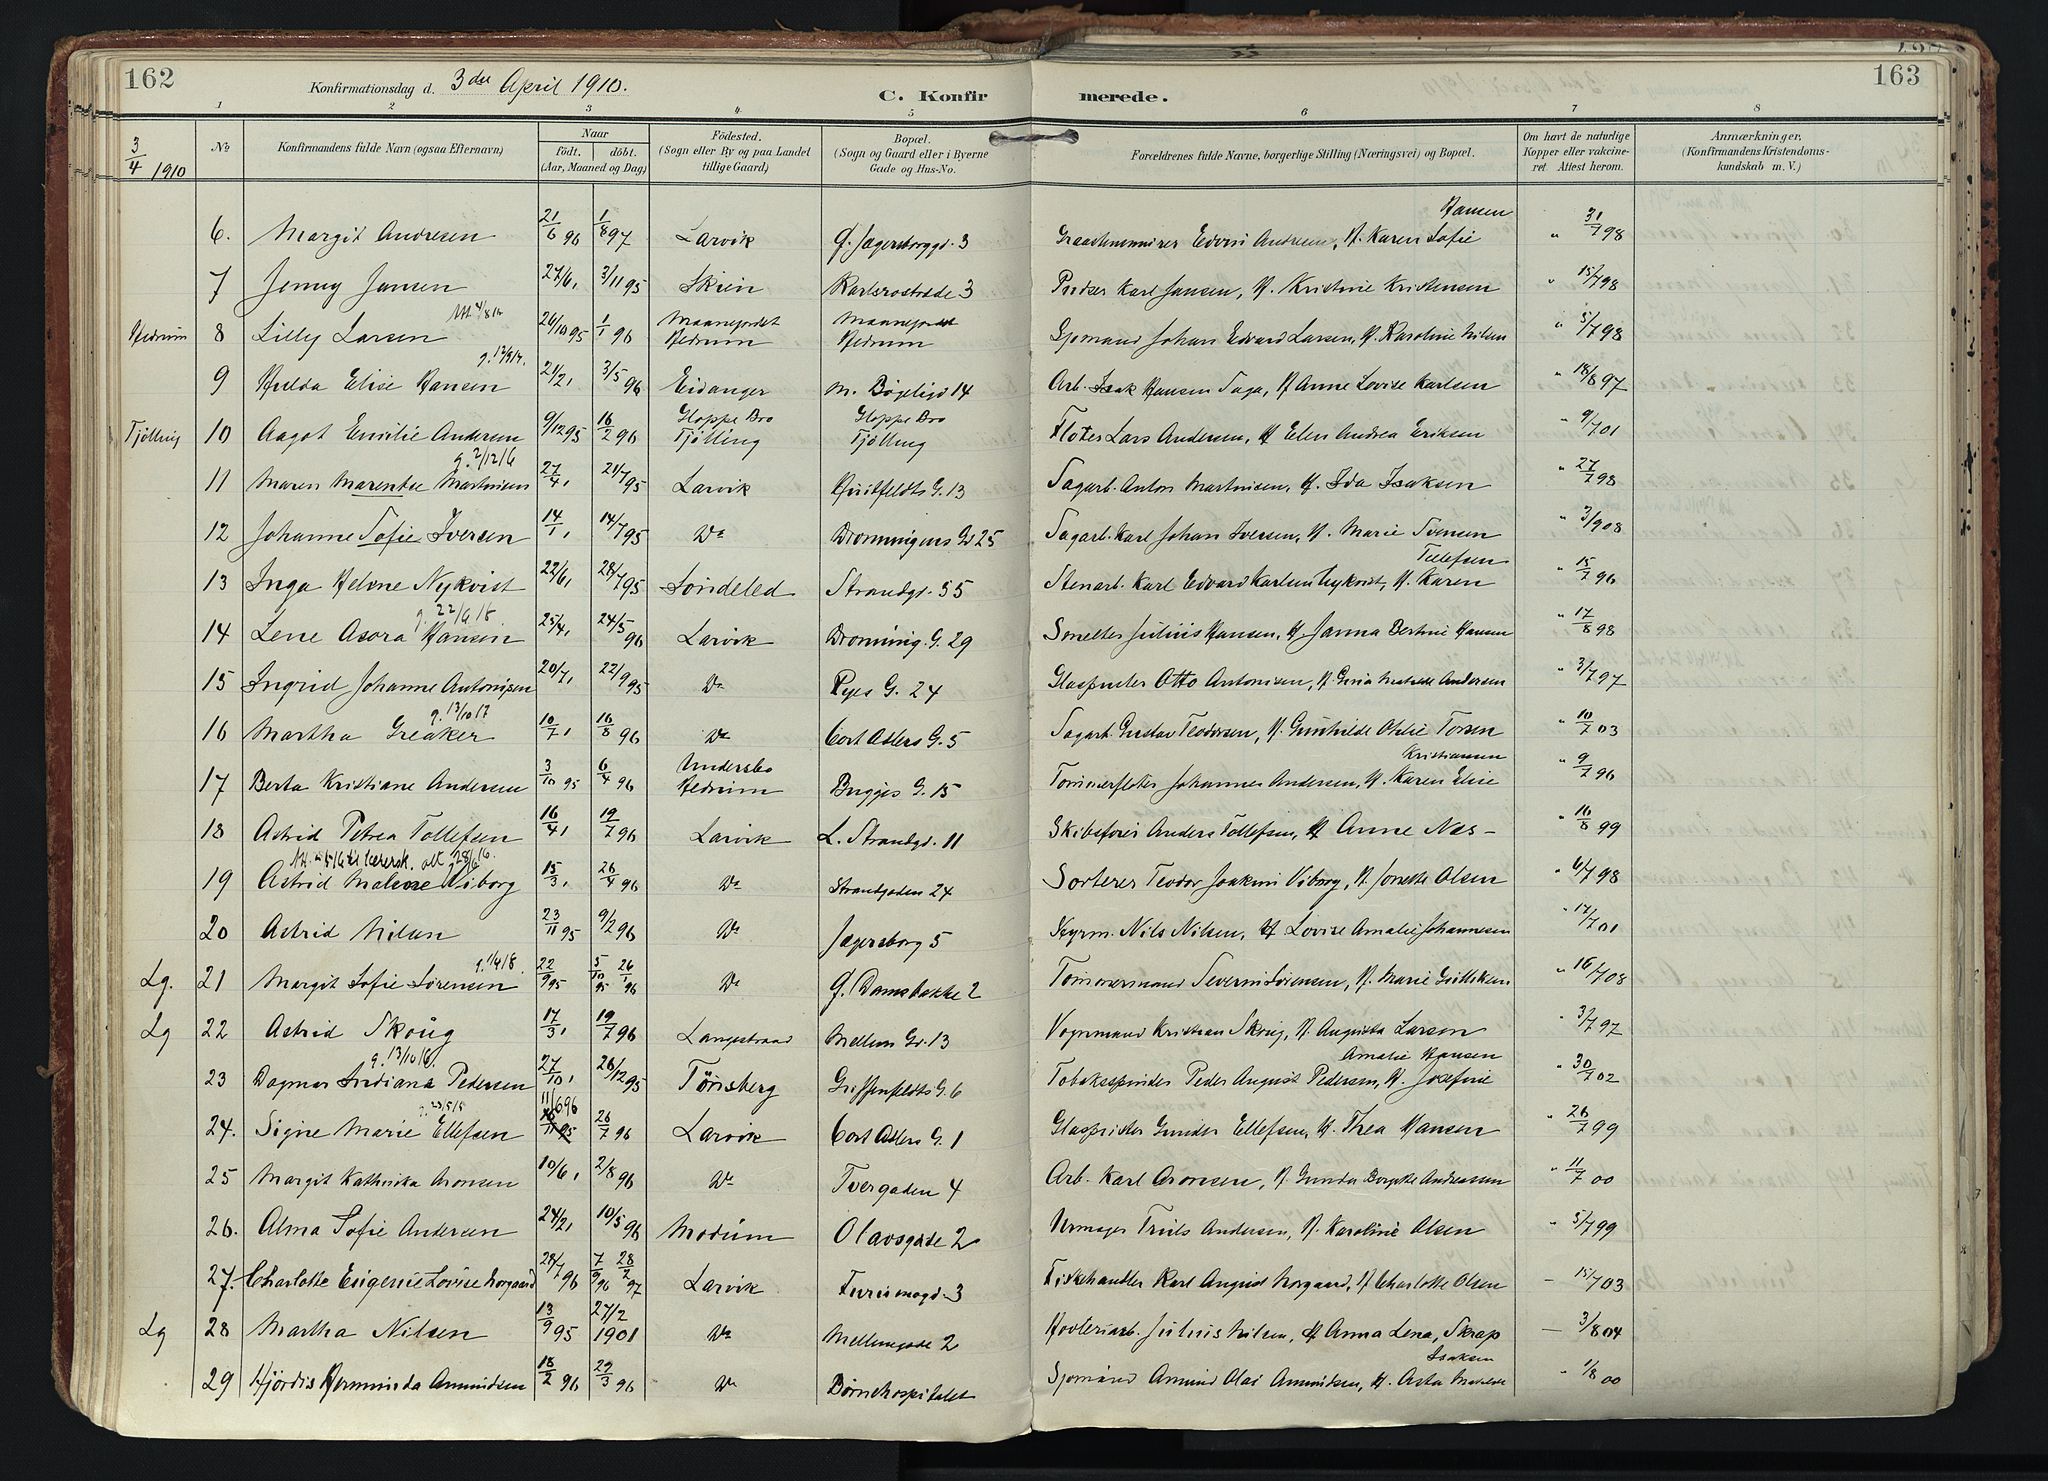 162
Konfirmationsdag d. 3die April 1910.
C. Konfirmerede.
163
1 2 3 4 5 6 7 8
3/4 1910
No
Konfirmandens fulde Navn (ogsaa Efternavn)
Naar
født. døbt.
(Aar, Maaned og Dag)
Fødested.
(Sogn eller By og paa Landet tillige Gaard)
Bopæl.
(Sogn og Gaard eller i Byerne Gade og Hus-No.
Forældrenes fulde Navne, borgerlige Stilling (Næringsvei) og Bopæl.
Om havt de naturlige Kopper eller vakcineret. Attest herom.
Anmærkninger.
(Konfirmandens Kristendomskundskab m. V.)
6. Margit Andresen 21/6 96 1/8 97 Larvik Ø. Jegersborggd. 3 Edvin Andresen, H. Karen Sofie Hansen " 31/7 98
7 Jenny Jansen 27/6, 3/11 95 Skien Karlsrostrade 3 Pudser Karl Jansen, H. Kristine Kristensen " 15/7 98
Hedrum 8 Lilly Larsen 26/10 95 1/1 96 Mannejordet Hedrum Mannejordet Hedrum Sjømand Johan Edvard Larsen, H. Karoline Nilsen " 5/7 98
9 Hulda Elise Hansen g. 21/2, 3/5 96 Eidanger M. Bøgeligd 14 Arb. Isak Hansen Saga, H. Anne Lovise Karlsen " 18/8 97
Tjølling 10 Aagot Emilie Andersen 9/12 95 16/2 96 Gloppe Bro Tjølling Gloppe Bro Tjølling Fløter Lars Andersen, H. Elen Andrea Eriksen " 9/7 01
11 Maren Marentse Martinsen g. 2/12 16 27/4, 21/7 95 Larvik Huitfeldts G. 13 Sagarb. Anton Martinsen, H. Ida Isaksen " 27/7 98
12 Johanne Sofie Iversen 14/1, 14/7 95 Do Dronningens Gd 25 Sagarb. Karl Johan Iversen, H. Marie Svensen " 3/9 08
13 Inga Helene Nykvist 22/6, 28/7 95 Søndeled Strandgd. 55 Stenarb. Karl Edvard Karlsen Nykvist, H. Karen Tellefsen " 15/7 96
14 Lene Asora Hansen g. 22/6 18. 25/4, 24/5 96 Larvik Dronning. G. 29 Smelter Julius Hansen, H. Janna Bertine Hansen " 17/8 98
15 Ingrid Johanne Antonisen 20/7, 22/9 95 Do Ryes G. 24 Glaspuster Otto Antonisen, H. Gina Matilde Andersen " 3/7 97
16 Martha Greaker g. 13/10 17 10/7, 16/8 96 Do Cort Adlers G. 5 Sagarb. Gustav Teodorsen, H. Gunhilde Otilie Torsen " 10/7 03
17 Berta Kristiane Andersen 3/10 95 6/4 96 Undersbo Hedrum Brygges G. 15 Tømmerfløter Johannes Andersen, H. Karen Elise Kristiansen " 9/7 96
18 Astrid Petrea Tollefsen 16/4, 19/7 96 Larvik L. Strandgd. 11 Skibsfører Anders Tollefsen, H. Anne Næs - " 16/8 99
19 Astrid Malene Viborg 28/6 16. 15/3, 26/4 96 Do Strandgaden 24 Sorterer Teodor Joakim Viborg, H. Jonette Olsen " 6/7 98
20 Astrid Nilsen 23/11 95 9/2 96 Do Jegersborg 5 Styrm. Nils Nilsen, H. Lovise Amalie Johannesen " 17/7 01
Lg. 21 Margit Sofie Sørensen g. 1/4 18. 22/9 95 5/10 95 26/1 96 Do Ø. Damsbakke 2 Tømmermand Severin Sørensen, H. Marie " 16/7 08
Lg 22 Astrid Skoug 17/3, 19/7 96 Langestrand Mellem Gd. 13 Vognmand Kristian Skoug, H. Augusta Larsen " 3/7 97
23 Dagmar Indiana Pedersen g. 13/10 16. 27/10, 26/12 95 Tønsberg Griffenfeldts G. 6 Tobaksspinder Peder August Pedersen, H. Josefine Amalie Hansen " 30/7 02
24. Signe Marie Ellefsen g. 23/5/8 11/6 96 26/7 96 Larvik Cort Adlers G. 1 Glaspuster Gunder Ellefsen, H. Thea Hansen " 26/7 99
25 Margit Kathinka Aronsen 10/6, 2/8 96 Do Tvergaden 4 Arb. Karl Aronsen, H. Gunda Andreassen " 11/7 00
26. Alma Sofie Andersen 24/2, 10/5 96 Modum Olavsgade 2 Urmager Truls Andersen, H. Karoline Olsen " 5/7 99
27. Charlotte Eugenie Lovise Norgaard 28/7 96 7/9 96 28/2 97 Larvik Furumogd. 3 Fiskehandler Karl August Norgaard, H. Charlotte Olsen - 15/7 03
Lg 28 Martha Nilsen 13/9 95 27/2 1901 Do Mellemgade 2 Høvleriarb. Julius Nilsen, H. Anna Lena, Skrap — 3/8 04
29 Hjördis Herminda Amundsen 18/2 96 29/3 96 Do Børnehospitalet Sjømand Amund Olai Amundsen, H. Asta Matilde Isaksen " 1/8 00